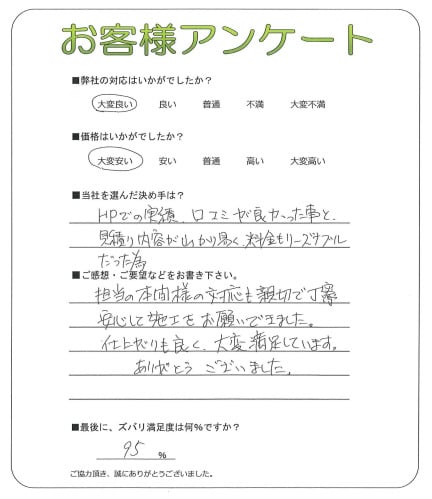 お客様アンケート
■弊社の対応はいかがでしたか?
大変良い 良い 普通 不満 大変不満
■価格はいかがでしたか?
大変安い 安い 普通 高い 大変高い
■当社を選んだ決め手は?
HPでの実績、口コミが良かった事と、
見積り内容が分かり易く、料金もリーズナブル
だった為
■ご感想・ご要望などをお書き下さい。
担当の本間様の対応も親切で丁寧
安心して施工をお願いできました。
仕上がりも良く、大変満足しています。
ありがとうございました。
■最後に、ズバリ満足度は何%ですか?
95 %
ご協力頂き、誠にありがとうございました。